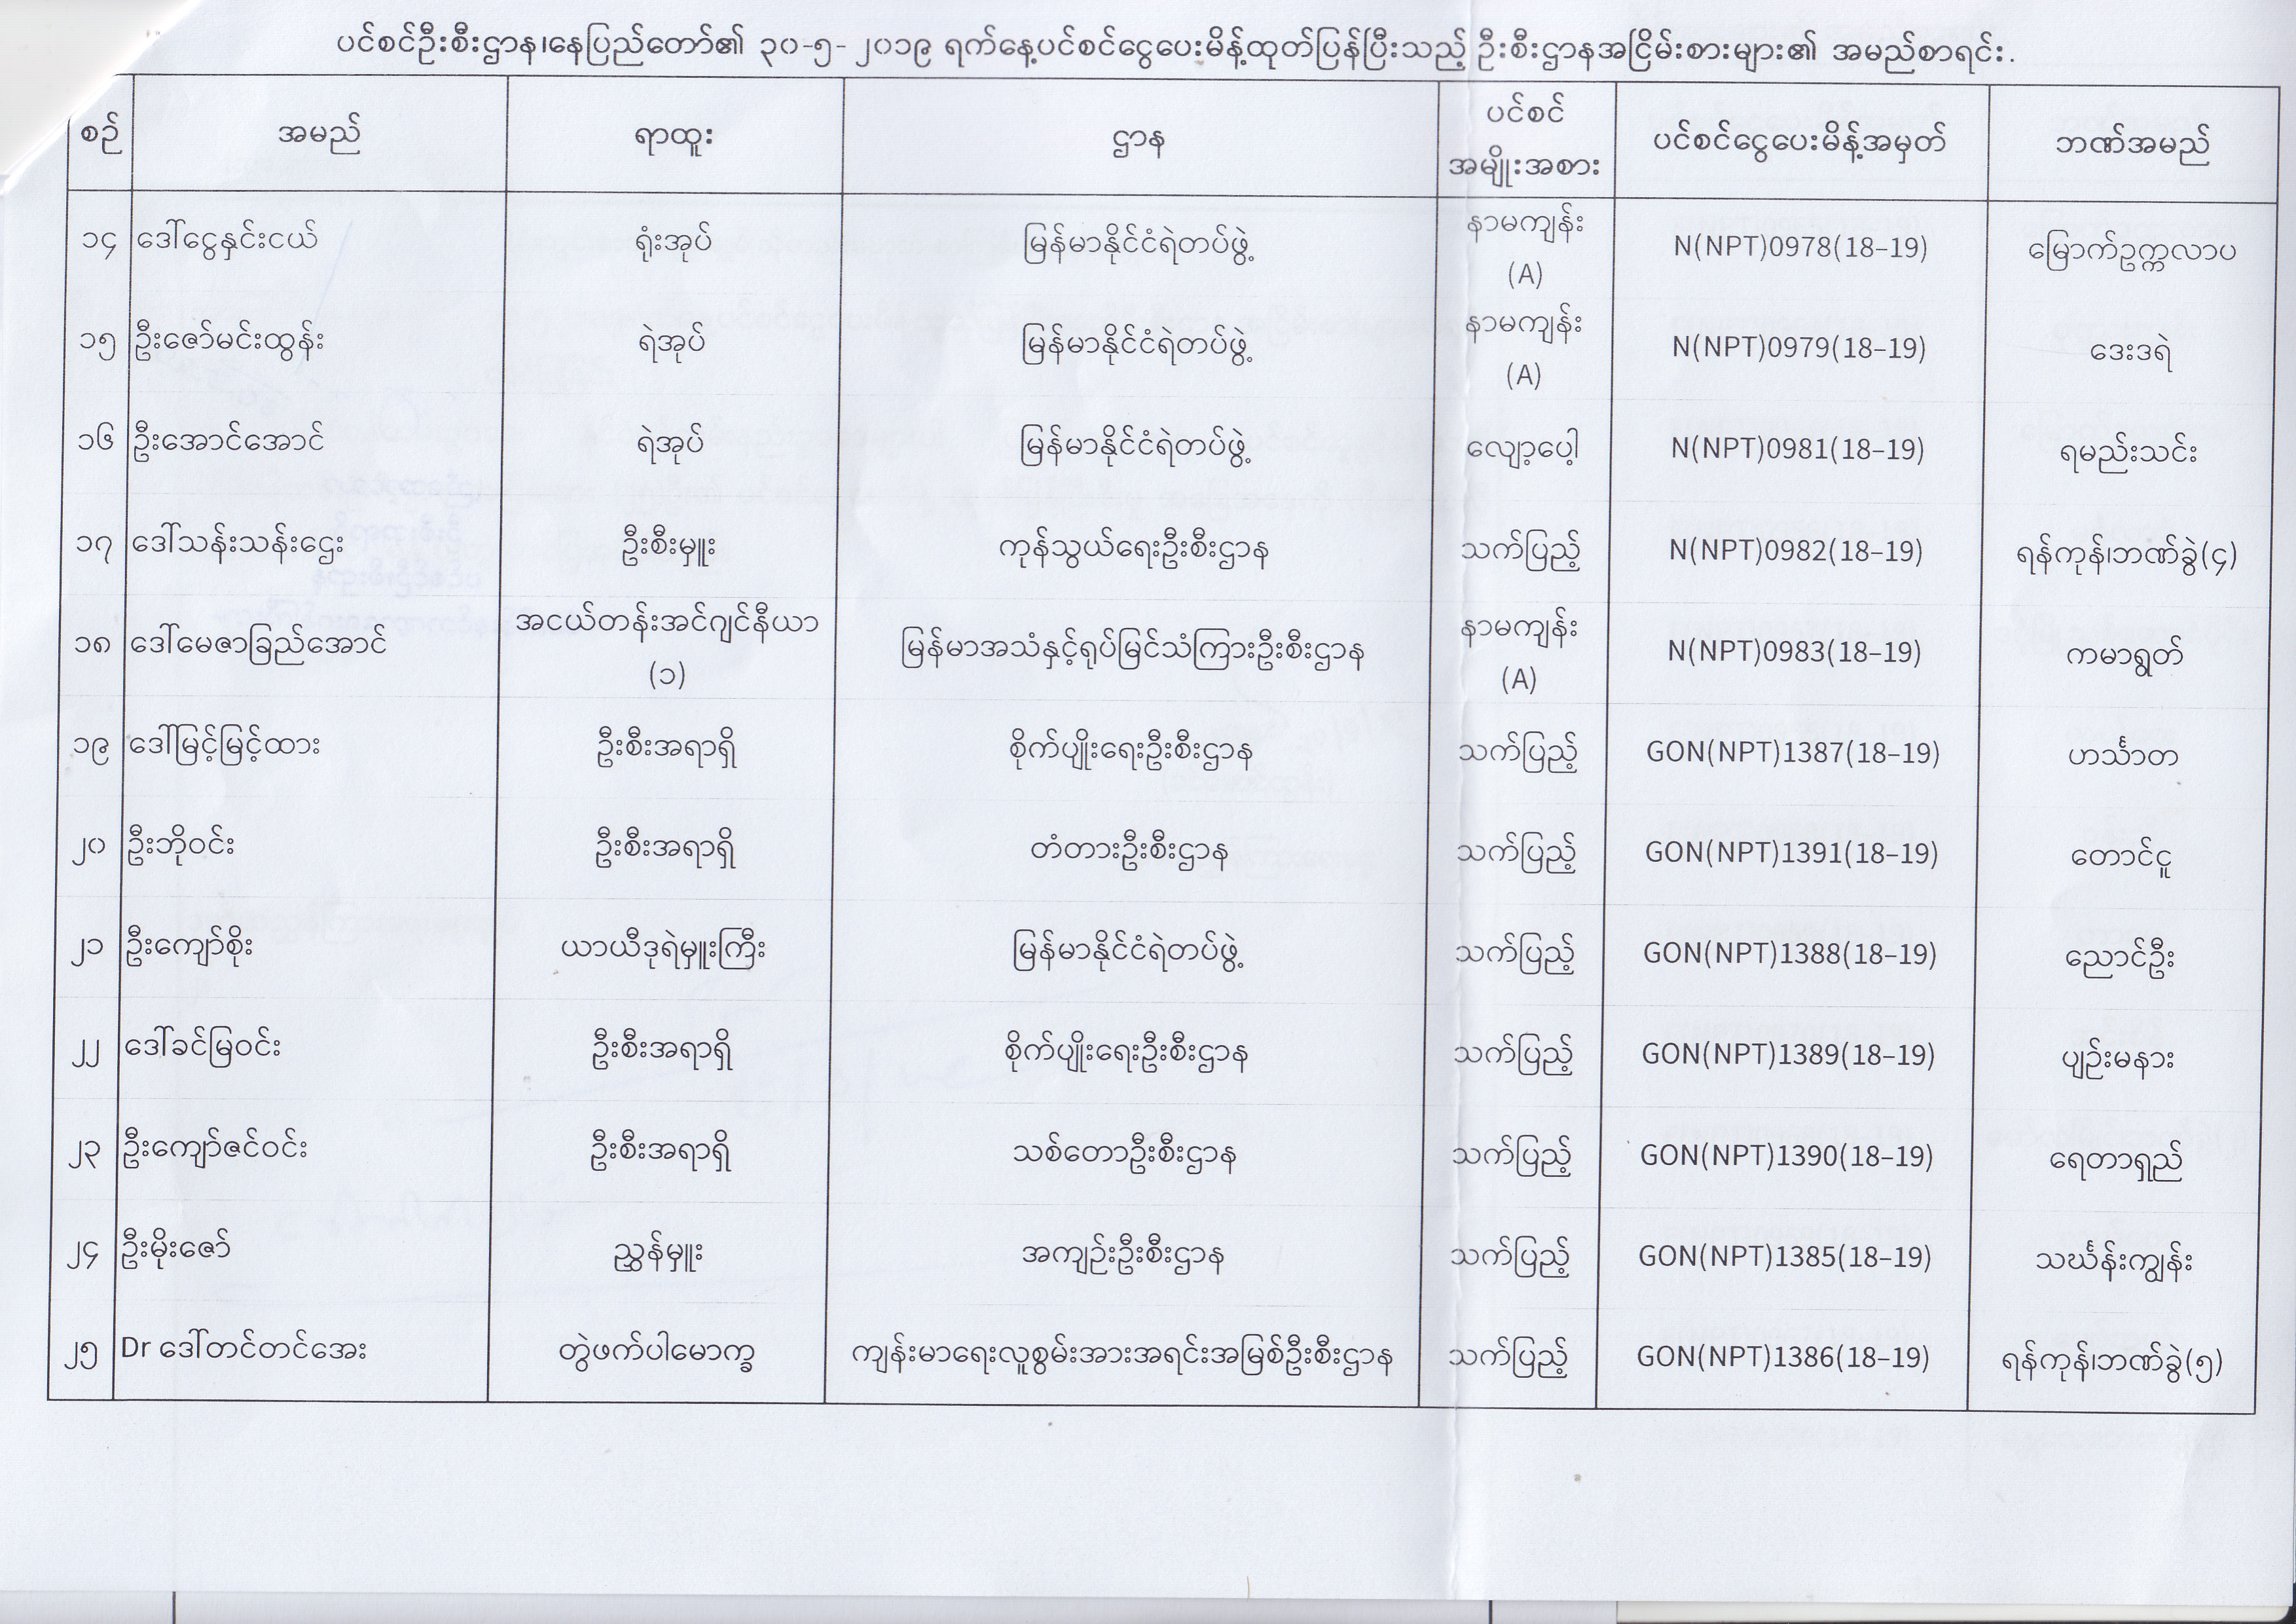 ပင်စင်ဦးစီးဌာန၊နေပြည်တော်၏ ၃၀-၅-၂၀၁၉ ရက်နေ့ပင်စင်ငွေပေးမိန့်ထုတ်ပြန်ပြီးသည့် ဦးစီးဌာနအငြိမ်းစားများ၏ အမည်စာရင်း.
စဉ် အမည် ရာထူး ဌာန ပင်စင် အမျိုးအစား ပင်စင်ငွေပေးမိန့်အမှတ် ဘဏ်အမည်
၁၄ ဒေါ်ငွေနှင်းငယ် ရုံးအုပ် မြန်မာနိုင်ငံရဲတပ်ဖွဲ့ နာမကျန်း (A) N(NPT)0978(18-19) မြောက်ဥက္ကလာပ
၁၅ ဦးဇော်မင်းထွန်း ရဲအုပ် မြန်မာနိုင်ငံရဲတပ်ဖွဲ့ နာမကျန်း (A) N(NPT)0979(18-19) ဒေးဒရဲ
၁၆ ဦးအောင်အောင် ရဲအုပ် မြန်မာနိုင်ငံရဲတပ်ဖွဲ့ လျော့ပေါ့ N(NPT)0981(18-19) ရမည်းသင်း
၁၇ ဒေါ်သန်းသန်းဌေး ဦးစီးမှူး ကုန်သွယ်ရေးဦးစီးဌာန သက်ပြည့် N(NPT)0982(18-19) ရန်ကုန်၊ဘဏ်ခွဲ(၄)
၁၈ ဒေါ်မေဇာခြည်အောင် အငယ်တန်းအင်ဂျင်နီယာ (၁) မြန်မာအသံနှင့်ရုပ်မြင်သံကြားဦးစီးဌာန နာမကျန်း (A) N(NPT)0983(18-19) ကမာရွတ်
၁၉ ဒေါ်မြင့်မြင့်ထား ဦးစီးအရာရှိ စိုက်ပျိုးရေးဦးစီးဌာန သက်ပြည့် GON(NPT)1387(18-19) ဟင်္သာတ
၂၀ ဦးဘိုဝင်း ဦးစီးအရာရှိ တံတားဦးစီးဌာန သက်ပြည့် GON(NPT)1391(18-19) တောင်ငူ
၂၁ ဦးကျော်စိုး ယာယီဒုရဲမှူးကြီး မြန်မာနိုင်ငံရဲတပ်ဖွဲ့ သက်ပြည့် GON(NPT)1388(18-19) ညောင်ဦး
၂၂ ဒေါ်ခင်မြဝင်း ဦးစီးအရာရှိ စိုက်ပျိုးရေးဦးစီးဌာန သက်ပြည့် GON(NPT)1389(18-19) ပျဉ်းမနား
၂၃ ဦးကျော်ဇင်ဝင်း ဦးစီးအရာရှိ သစ်တောဦးစီးဌာန သက်ပြည့် GON(NPT)1390(18-19) ရေတာရှည်
၂၄ ဦးမိုးဇော် ညွှန်မှူး အကျဉ်းဦးစီးဌာန သက်ပြည့် GON(NPT)1385(18-19) သင်္ဃန်းကျွန်း
၂၅ Dr ဒေါ်တင်တင်အေး တွဲဖက်ပါမောက္ခ ကျန်းမာရေးလူ့စွမ်းအားအရင်းအမြစ်ဦးစီးဌာန သက်ပြည့် GON(NPT)1386(18-19) ရန်ကုန်၊ဘဏ်ခွဲ(၅)